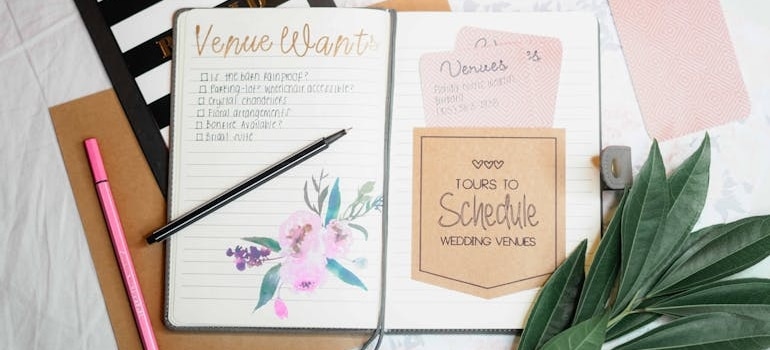 Venue Wants
Is the barn rainproof?
Parking-lot wheelchair accessible?
Crystal chandeliers
Floral arrangements
Bonfire Available?
Bridal suite
Venues
's
TOURS TO
Schedule
WEDDING VENUES